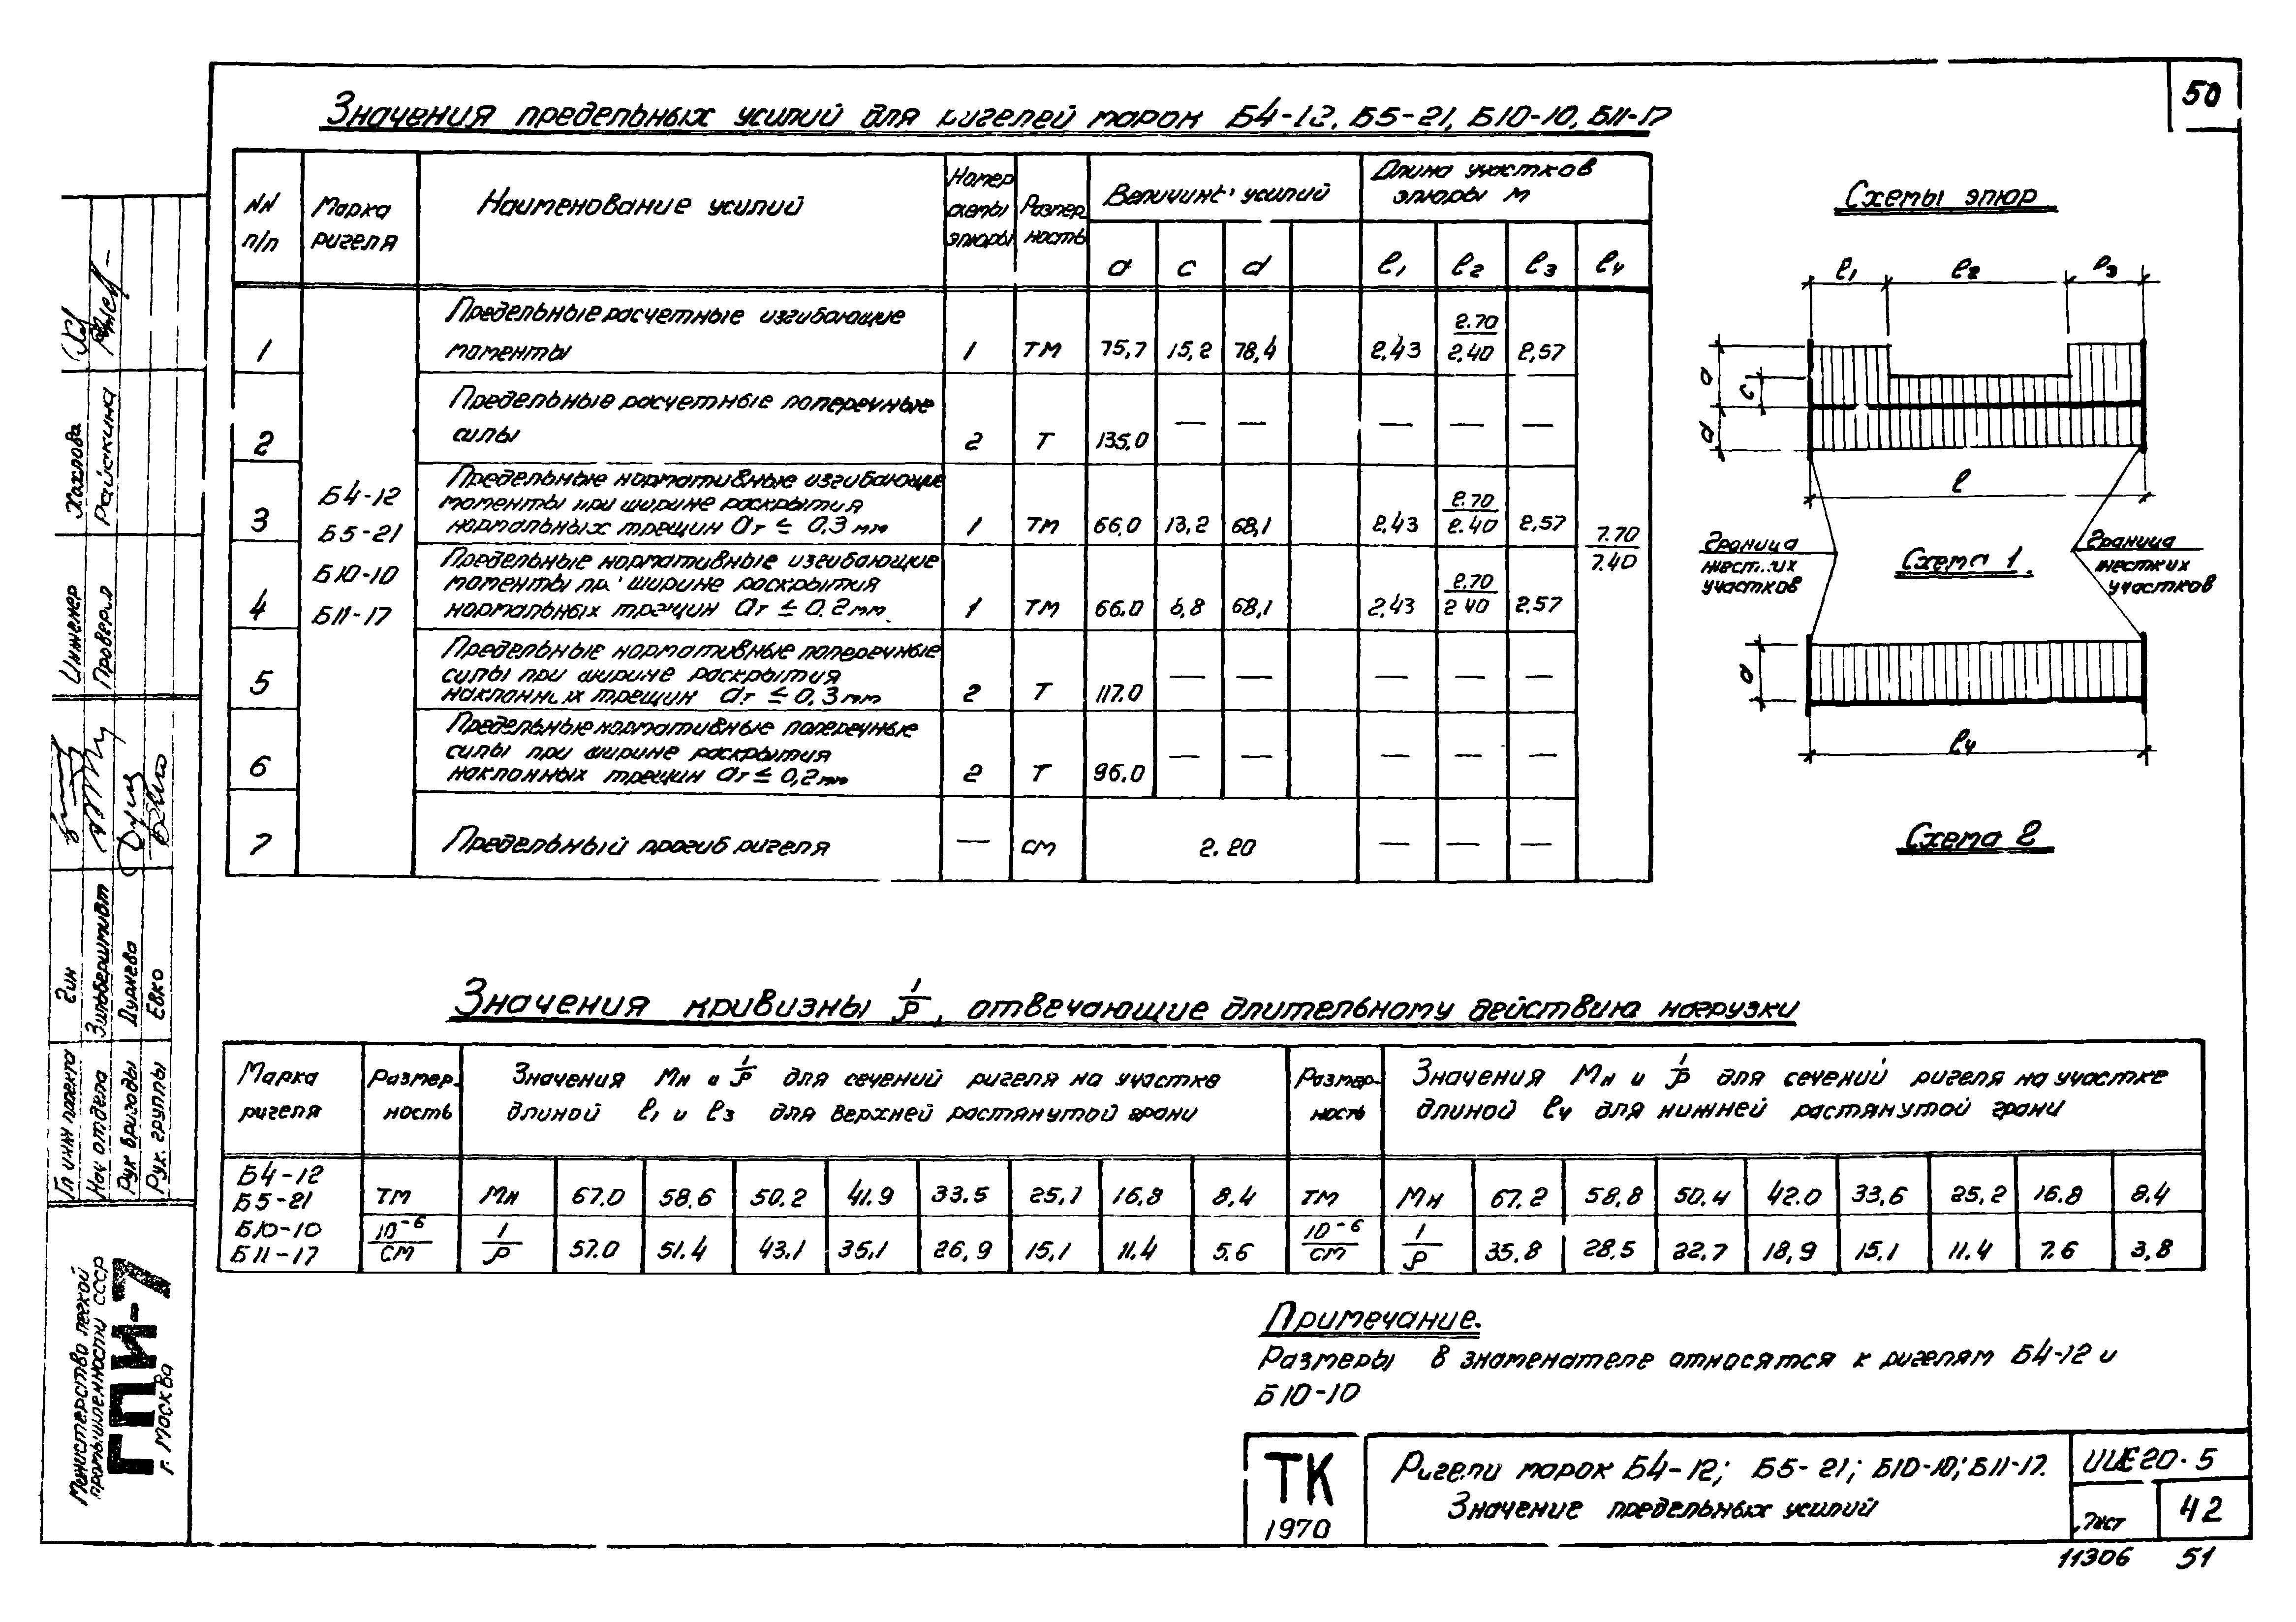 50
Значения предельных усилий для ригелей марок Б4-12, Б5-21, Б10-10, Б11-17
NN п/п
Марка ригеля
Наименование усилий
Номер схемы эпюры
Размерность
Величины усилий
Длина участков эпюры м
a c d l1 l2 l3 l4
Б4-12
Б5-21
Б10-10
Б11-17
1 Предельные расчетные изгибающие моменты 1 тм 75,7 15,2 78,4 2,43 2.70/2.40 2,57
2 Предельные расчетные поперечные силы 2 т 135.0 — — — — —
3 Предельные нормативные изгибающие моменты при ширине раскрытия нормальных трещин aт ≤ 0.3 мм 1 тм 66.0 13,2 68,1 2,43 2.70/2.40 2,57
4 Предельные нормативные изгибающие моменты при ширине раскрытия нормальных трещин aт ≤ 0.2 мм. 1 тм 66.0 6,8 68,1 2,43 2.70/2.40 2.57
5 Предельные нормативные поперечные силы при ширине раскрытия наклонных трещин aт ≤ 0,3 мм 2 т 117.0 — — — — —
6 Предельные нормативные поперечные силы при ширине раскрытия наклонных трещин aт ≤ 0,2 мм 2 т 96.0 — — — — —
7 Предельный прогиб ригеля — см 2.20 — — —
7.70/7.40
Схемы эпюр
l1 l2 l3
a
c
d
l
Граница жестких участков
Схема 1.
Граница жестких участков
a
l4
Схема 2
Значения кривизны 1/ρ, отвечающие длительному действию нагрузки
Марка ригеля
Размерность
Значения Мн и 1/ρ для сечений ригеля на участке
длиной l1 и l3 для верхней растянутой грани
Размерность
Значения Мн и 1/ρ для сечений ригеля на участке
длиной l4 для нижней растянутой грани
Б4-12
Б5-21
Б10-10
Б11-17
тм Мн 67.0 58.6 50.2 41.9 33.5 25,1 16,8 8,4 тм Мн 67.2 58.8 50.4 42.0 33,6 25,2 16.8 8.4
10⁻⁶/см 1/ρ 57.0 51.4 43.1 35,1 26,9 15,1 11.4 5,6 10⁻⁶/см 1/ρ 35,8 28,5 22,7 18,9 15,1 11.4 7.6 3,8
Примечание.
Размеры в знаменателе относятся к ригелям Б4-12 и
Б10-10
ТК
1970
Ригели марок Б4-12; Б5-21; Б10-10; Б11-17.
Значение предельных усилий
ИИЕ20-5
Лист
42
11306 51
Инженер
Проверил Райскина
Гл инж проекта
Гин
Нач отдела Зильберштивт
Рук бригады Дурнево
Рук. группы Евко
Министерство легкой
промышленности СССР
ГПИ-7
г. Москва